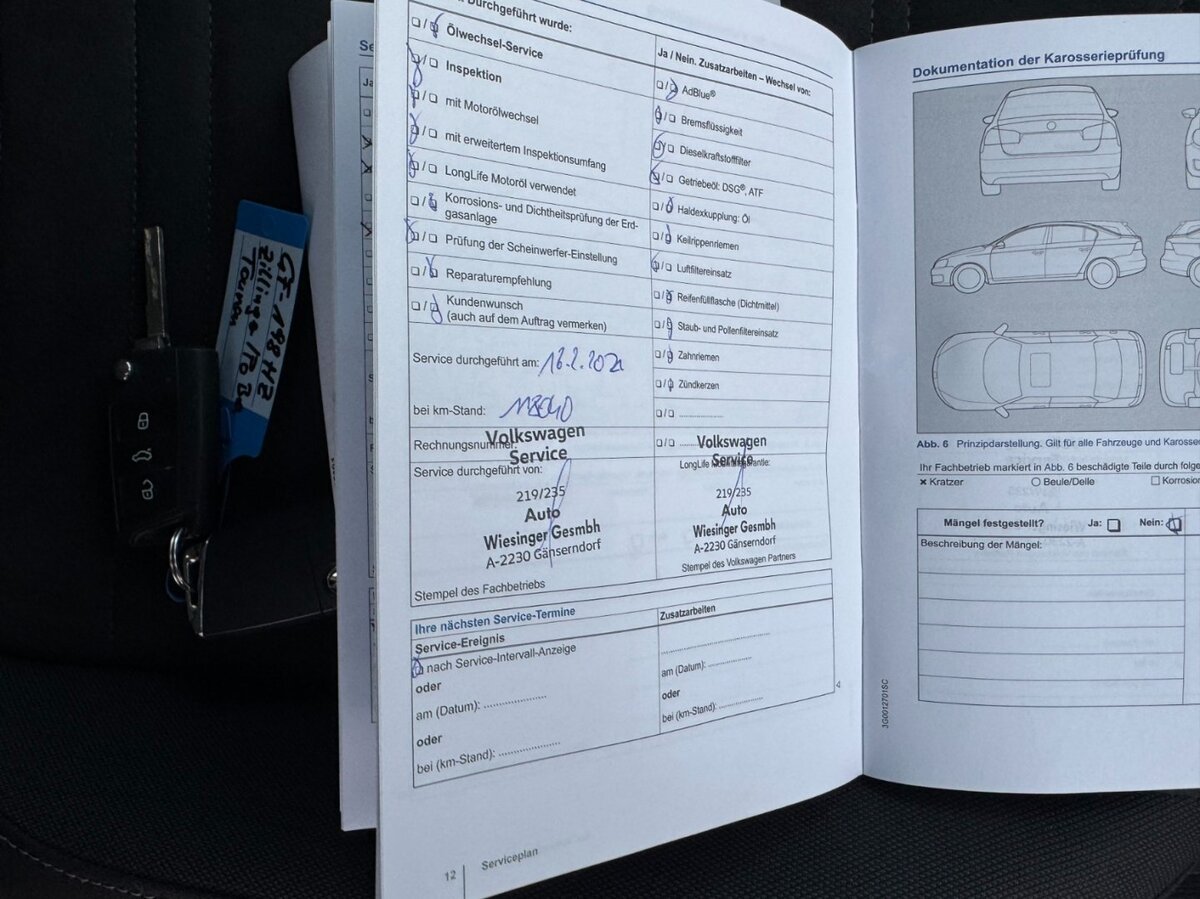 Durchgeführt wurde:
Ölwechsel-Service
Inspektion
mit Motorölwechsel
mit erweitertem Inspektionsumfang
LongLife Motoröl verwendet
Korrosions- und Dichtheitsprüfung der Erd-
gasanlage
Prüfung der Scheinwerfer-Einstellung
Reparaturempfehlung
Kundenwunsch
(auch auf dem Auftrag vermerken)
Service durchgeführt am:
bei km-Stand: 118040
Rechnungsnummer:
Volkswagen
Service
Service durchgeführt von:
219/235
Auto
Wiesinger Gesmbh
A-2230 Gänserndorf
Stempel des Fachbetriebs
Ja / Nein. Zusatzarbeiten – Wechsel von:
AdBlue®
Bremsflüssigkeit
Dieselkraftstofffilter
Getriebeöl: DSG®, ATF
Haldexkupplung: Öl
Keilrippenriemen
Luftfiltereinsatz
Reifenfüllflasche (Dichtmittel)
Staub- und Pollenfiltereinsatz
Zahnriemen
Zündkerzen
Volkswagen
Service
219/235
Auto
Wiesinger Gesmbh
A-2230 Gänserndorf
Stempel des Volkswagen Partners
Ihre nächsten Service-Termine
Service-Ereignis
nach Service-Intervall-Anzeige
oder
am (Datum):
oder
bei (km-Stand):
Zusatzarbeiten
am (Datum):
oder
bei (km-Stand):
12 Serviceplan
Dokumentation der Karosserieprüfung
Abb. 6 Prinzipdarstellung. Gilt für alle Fahrzeuge und Karosser
Ihr Fachbetrieb markiert in Abb. 6 beschädigte Teile durch folge
× Kratzer ○ Beule/Delle □ Korrosion
Mängel festgestellt? Ja: Nein:
Beschreibung der Mängel:
3G0012701SC
GF-198HZ